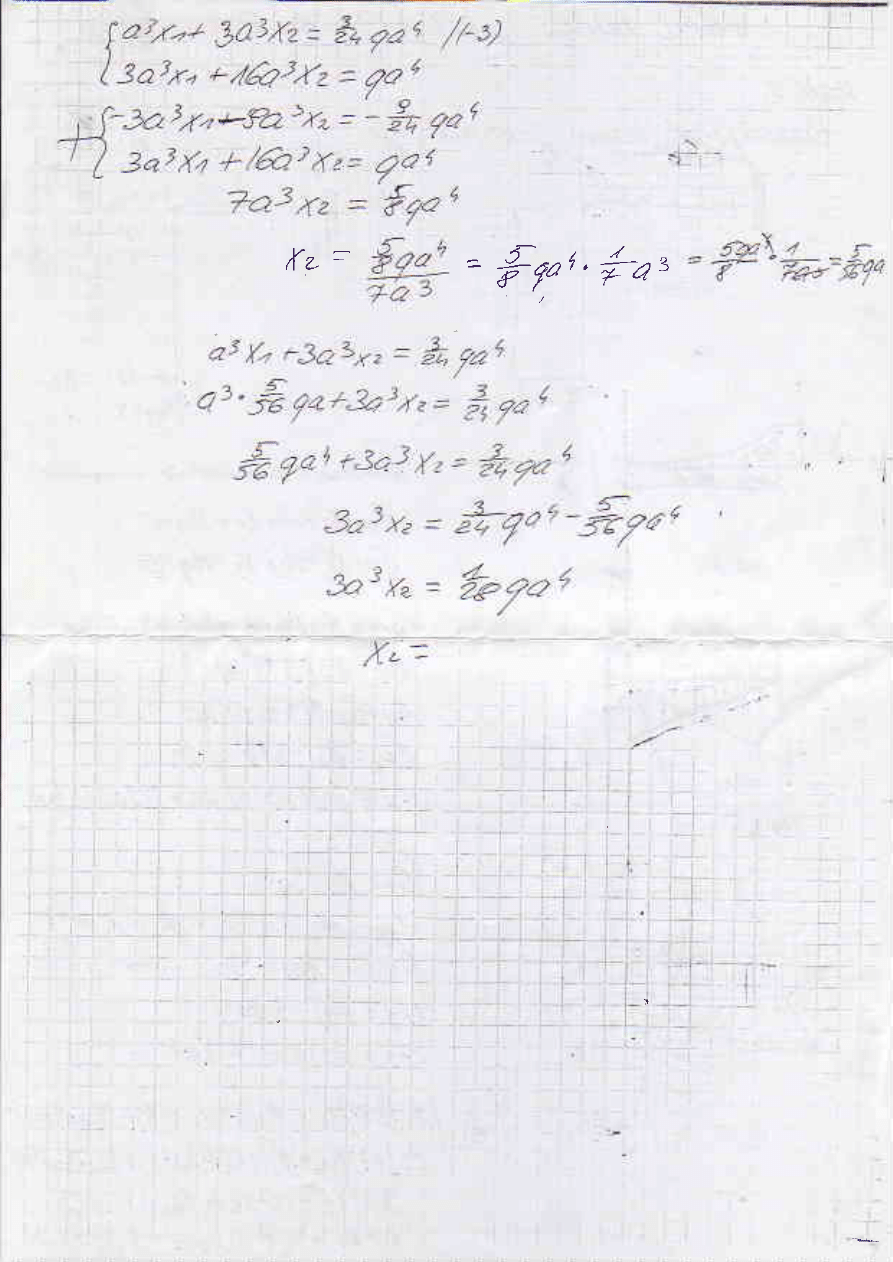 { a³x₁ + 3a³x₂ = 3/24 qa⁴ /(-3)
{ 3a³x₁ + 16a³x₂ = qa⁴
+ { -3a³x₁ - 9a³x₂ = - 9/24 qa⁴
{ 3a³x₁ + 16a³x₂ = qa⁴
7a³x₂ = 5/8 qa⁴
x₂ = (5/8 qa⁴)/(7a³) = 5/8 qa⁴ · 1/7 a³ = 5qa⁴/8 · 1/7a³ = 5/56 qa
a³x₁ + 3a³x₂ = 3/24 qa⁴
a³ · 5/56 qa + 3a³x₂ = 3/24 qa⁴
5/56 qa⁴ + 3a³x₂ = 3/24 qa⁴
3a³x₂ = 3/24 qa⁴ - 5/56 qa⁴
3a³x₂ = 1/28 qa⁴
x₂ =